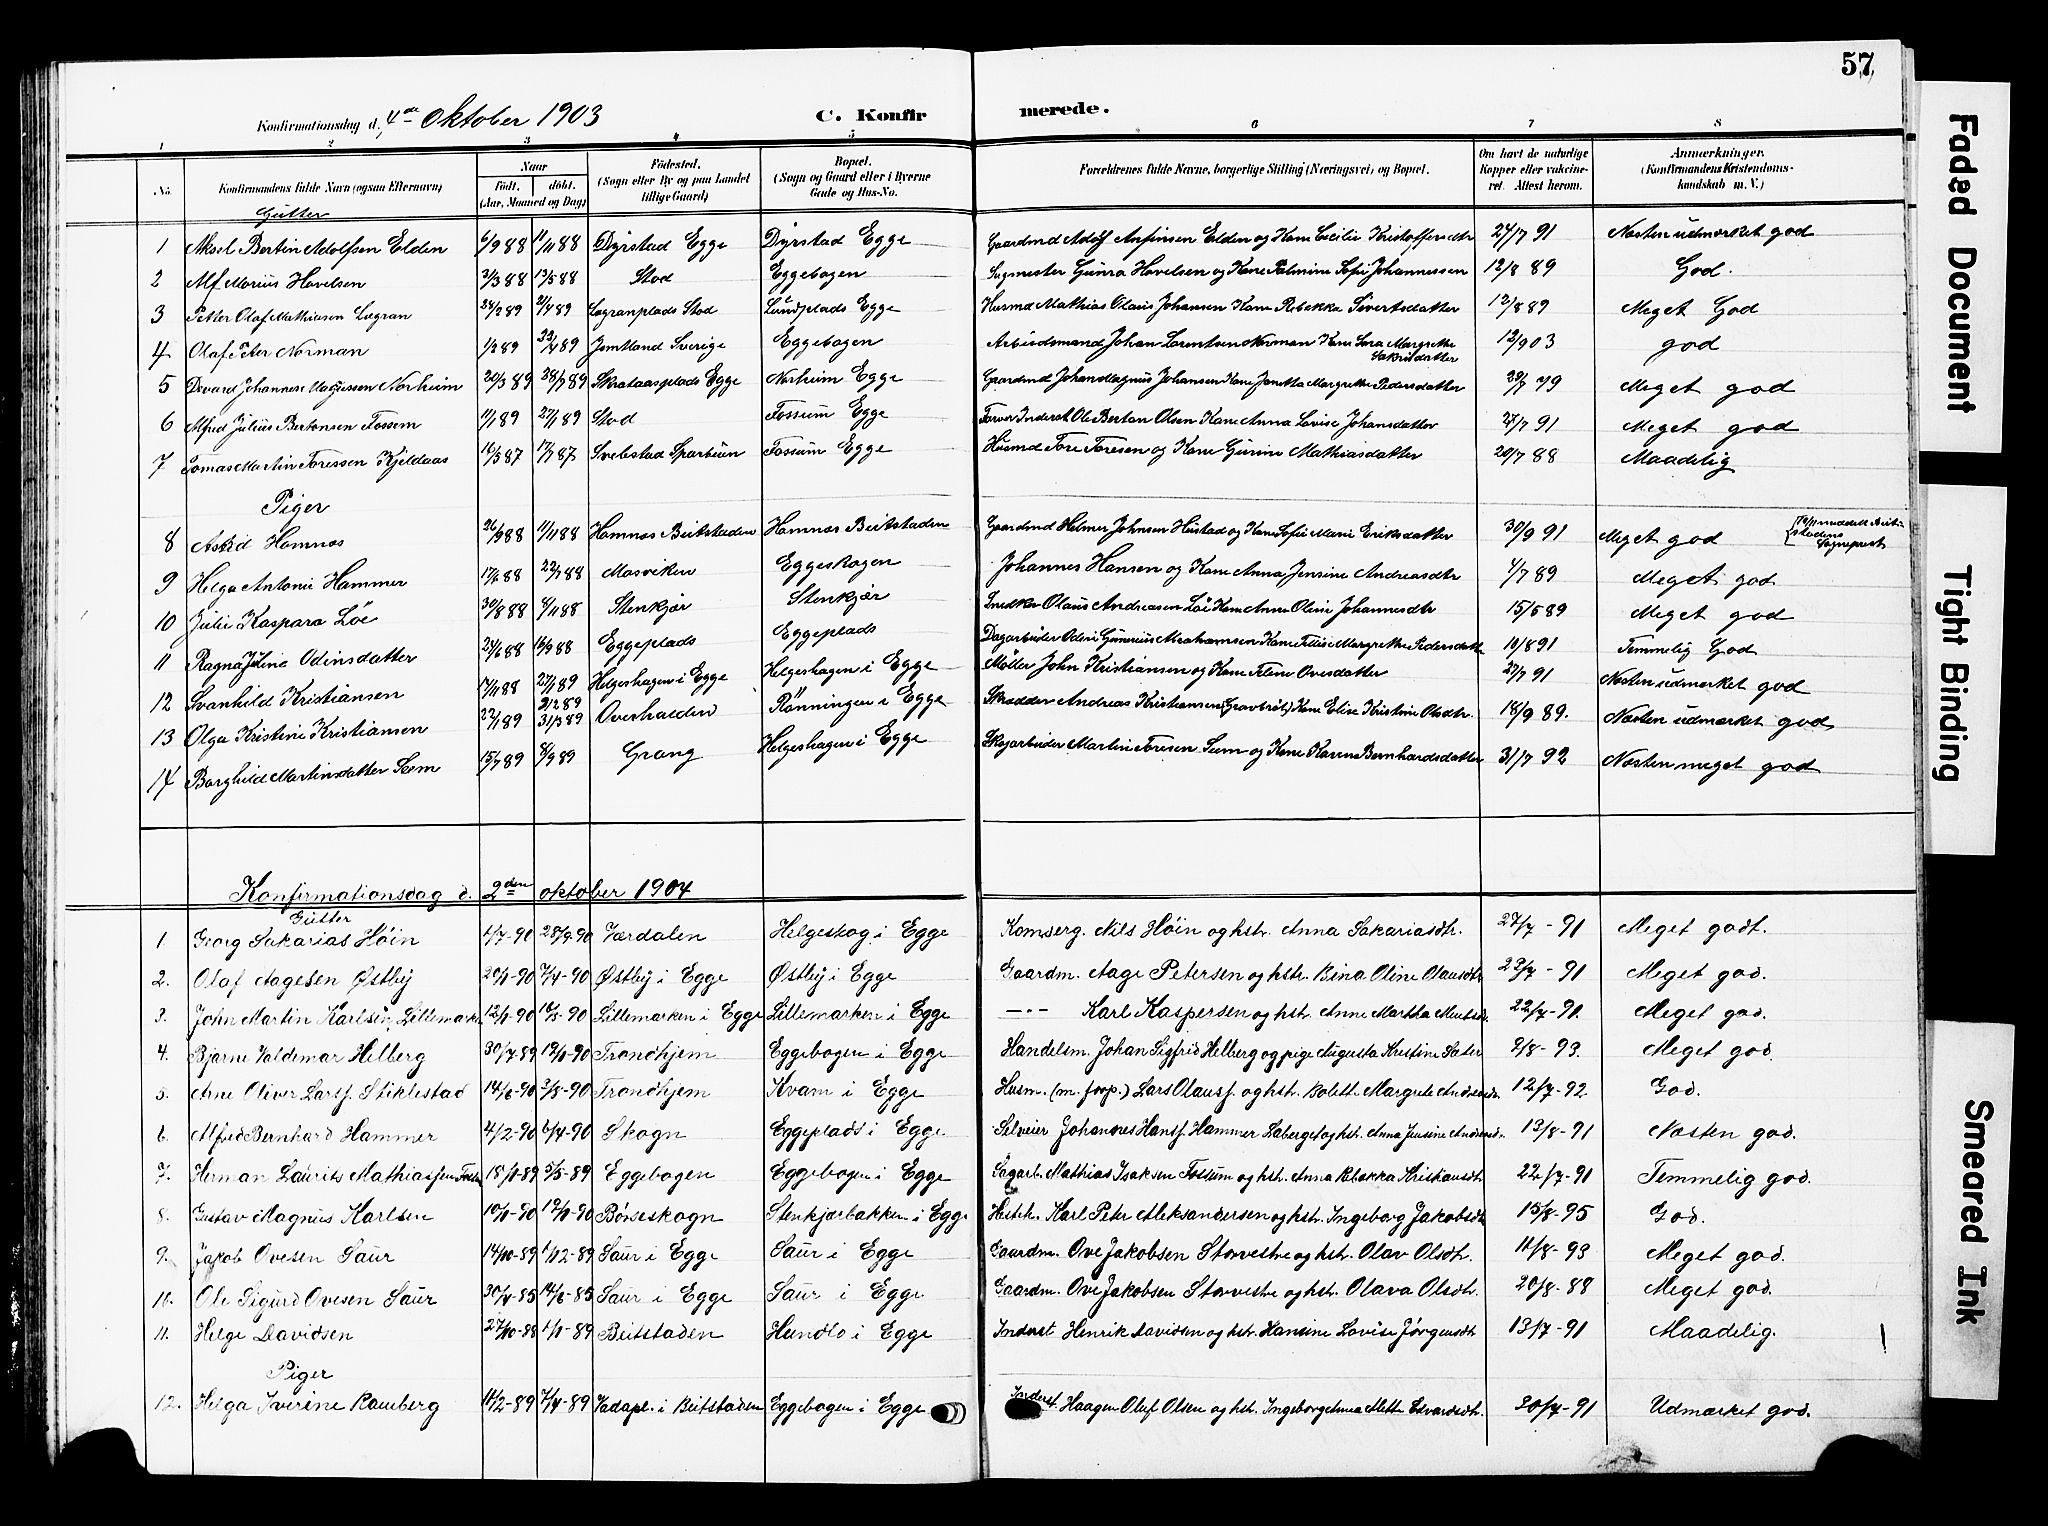 57
Konfirmationsdag d. 4de Oktober 1903 C. Konfirmerede.
1 2 3 4 5 6 7 8
No. Konfirmandens fulde Navn (ogsaa Efternavn) Naar Født. døbt. (Aar, Maaned og Dag) Födested. (Sogn eller By og paa Landet tillige Gaard) Bopæl. (Sogn og Gaard eller i Byerne Gade og Hus-No. Forældrenes fulde Navne, borgerlige Stilling (Næringsvei) og Bopæl. Om havt de naturlige Kopper eller vakcineret. Attest herom. Anmærkninger. (Konfirmandens Kristendomskundskab m. V.)
Gutter
1 Aksel Bertin Adolfsen Elden 6/9 88 11/11 88 Dyrstad Egge Dyrstad Egge Gaardmd Adolf Anfinsen Elden og Kone Cecilie Kristoffersdtr 24/7 91 Næsten udmærket god
2 Alf Marius Havelsen 31/3 88 13/5 88 Stod Eggebogen Sagmester Gunra Havelsen og Kone Palmine Sofie Johannessen 12/8 89 God.
3 Petter Olaf Mathiasen Lagran 24/2 89 21/4 89 Lagranplads Stod Lundplads Egge Husmd Mathias Olaus Johansen Kone Rebekka Sivertsdatter 12/8 89 Meget God
4 Olaf Peter Norman 1/3 89 22/4 89 Jemtland Sverige Eggebogen Arbeidsmand Johan Lorentsen Norman Kone Sara Margrethe Sakrisdatter 12/9 03 god
5 Edvard Johannes Magnussen Norheim 20/3 89 28/7 89 Skrataasplads Egge Norheim Egge Gaardmd Johan Magnus Johansen Kone Janetta Margrethe Pedersdatter Meget god
6 Alfred Julius Bertonsen Fossem 11/1 89 27/1 89 Stod Fossum Egge Farver Inderst Ole Bertan Olsen Kone Anna Lovise Johansdatter 27/7 91 Meget god
7 Tomas Martin Toressen Kjeldaas 16/3 87 17/7 87 Svebstad Sparbuen Fossum Egge Husmd Tore Toresen og Kone Gurine Mathiasdatter 20/7 88 Maadelig
Piger
8 Astrid Hamnes 26/9 88 11/11 88 Hamnes Beitstaden Hamnes Beitstaden Gaardmd Helmer Johnsen Hustad og Kone Sofie Marie Eriksdatter 30/9 91 Meget god Sogneprest
9 Helga Antonie Hammer 22/7 88 Mosviken Eggeskogen Johannes Hansen og Kone Anna Jensine Andreasdtr 1/7 89 Meget god
10 Julie Kaspara Löe 30/8 88 4/11 88 Stenkjær Stenkjær Snedker Olaus Andreasen Löe Kone Anne Oline Johannesdtr 15/5 89 Meget god
11 Ragna Juline Odinsdatter 24/6 88 16/9 88 Eggeplads Eggeplads Dagarbeider Odin Gunerius Abrahamsen Kone Margrethe Pedersdatter 10/8 91 Temmelig God
12 Svanhild Kristiansen 17/11 88 27/1 89 Helgeshagen i Egge Helgeshagen i Egge Møller John Kristiansen og Kone Ovesdatter 27/7 91 Næsten udmærket god
13 Olga Kristine Kristiansen 22/1 89 31/3 89 Overhalden Rönningen i Egge Skrædder Andreas Kristiansen (Gravbröt) Kone Elise Kristine Olsdtr. 18/9 89. Næsten udmærket god
14 Borghild Martinsdatter Sem 15/7 89 8/9 89 Grong Helgeshagen i Egge Skogarbeider Martin Toresen Sem og Kone Karen Bernhardsdatter 31/7 92 Næsten meget god
Konfirmationsdag d. 2den oktober 1904
Gutter
1. Georg Sakarias Høin 1/7-90 28/9-90 Værdalen Helgeskog i Egge Komserg. Nils Høin og hstr. Anna Sakariasdtr. 27/7-91 Meget godt.
2. Olaf Aagesen Østby 20/1-90 7/4-90 Østby i Egge Østby i Egge Gaardm. Aage Petersen og hstr. Bina Oline Olausdtr 23/7-91 Meget god.
3. John Martin Karlsen, Lillemarken 12/1-90 16/3-90 Lillemarken i Egge Lillemarken i Egge —·— Karl Kaspersen og hstr. Anne Martha 22/7-91. Meget god.
4. Bjarne Valdemar Helberg 30/7-89 19/1-90 Trondhjem Eggebogen i Egge Handelsm. Johan Sigfrid Helberg og pige Augusta Kristine Sæter 2/8-93. Meget god.
5. Arne Oliver Larsf. Stiklestad 14/6-90 3/8-90 Trondhjem Kvam i Egge Husm. (m. forp.) Lars Olausf. og hstr. Bolette Margrete 12/7-92 God.
6. Alfred Bernhard Hammer 4/2-90 6/4-90 Skogn Eggeplads i Egge Selveier Johannes Hansf. Hammer og hstr. Anna Jensine 13/8-91 Næsten god.
7. Herman Laurits Mathiasfen 18/1-89 5/5-89 Eggebogen Eggebogen i Egge Sagarb. Mathias Isaksen Fossum og hstr. Anna Rebekka Kristiansdt 22/7-91 Temmelig god.
8. Gustav Magnus Karlsen 10/1-90 12/1-90 Børseskogn Stenkjærbakken i Egge Karl Peter Aleksandersen og hstr. Ingeborg Jakobsdt 15/8-95 God.
9. Jakob Ovesen Saur 14/10-89 1/12-89 Saur i Egge Saur i Egge Gaardm. Ove Jakobsen Storvestre og hstr. Olav Olsdtr. 11/8-93 Meget god.
10. Ole Sigurd Ovesen Saur 30/4-85 14/6-85 Saur i Egge Saur i Egge Gaardm. Ove Jakobsen Storvestre og hstr. Olava Olsdtr. 20/8-88 Meget god.
11. Helge Davidsen 27/10-88 1/1-89 Beitstaden Hundlo i Egge Inderst Henrik Davidsen og hstr. Hansine Lovise Jørgensdtr 13/7-91 Maadelig.
Piger
12. Helga Iverine Ramberg 11/2-89 7/4-89 Vadapl. i Beitstaden Eggebogen i Egge Inderst. Haagen Oluf Olsen og hstr. Ingeborg Anna Mette Edvardsdtr. 30/7-91 Udmærket god.
Faded Document
Tight Binding
Smeared Ink